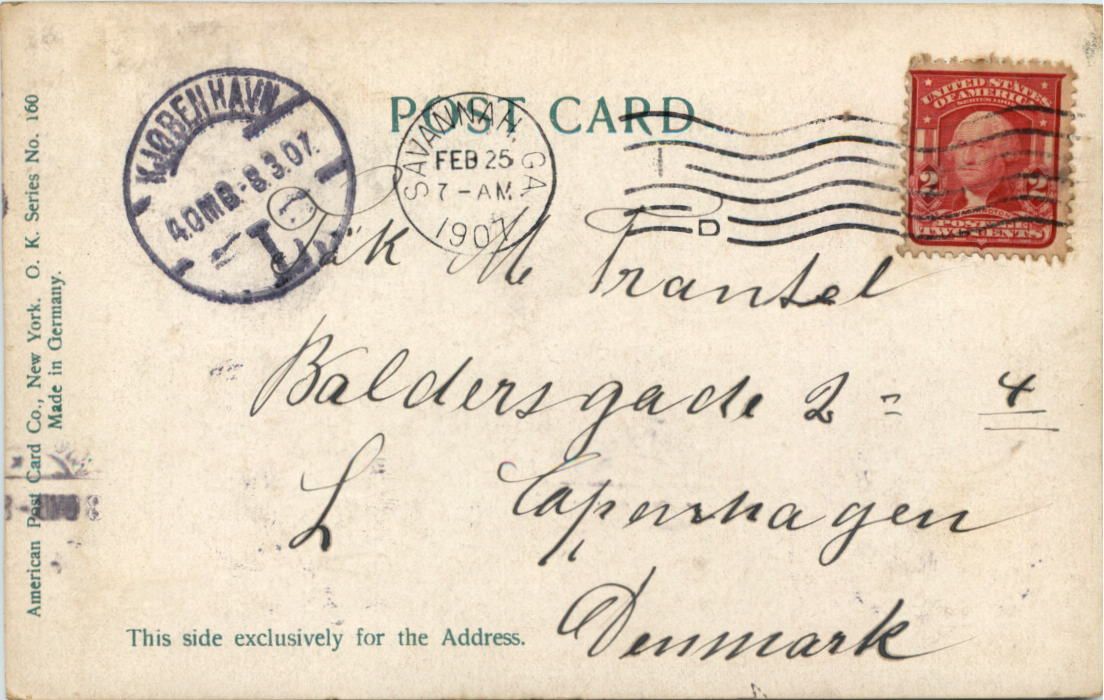 POST CARD
KJØBENHAVN
4.OMB-8.3.07.
I
SAVANNAH, GA
FEB 25
7-AM
1907
D
UNITED STATES
OF AMERICA
SERIES 1902
2 2
POSTAGE
TWO CENTS
M Trantel
Baldersgade 2 = 4
L Copenhagen
Denmark
This side exclusively for the Address.
American Post Card Co., New York. O. K. Series No. 160
Made in Germany.